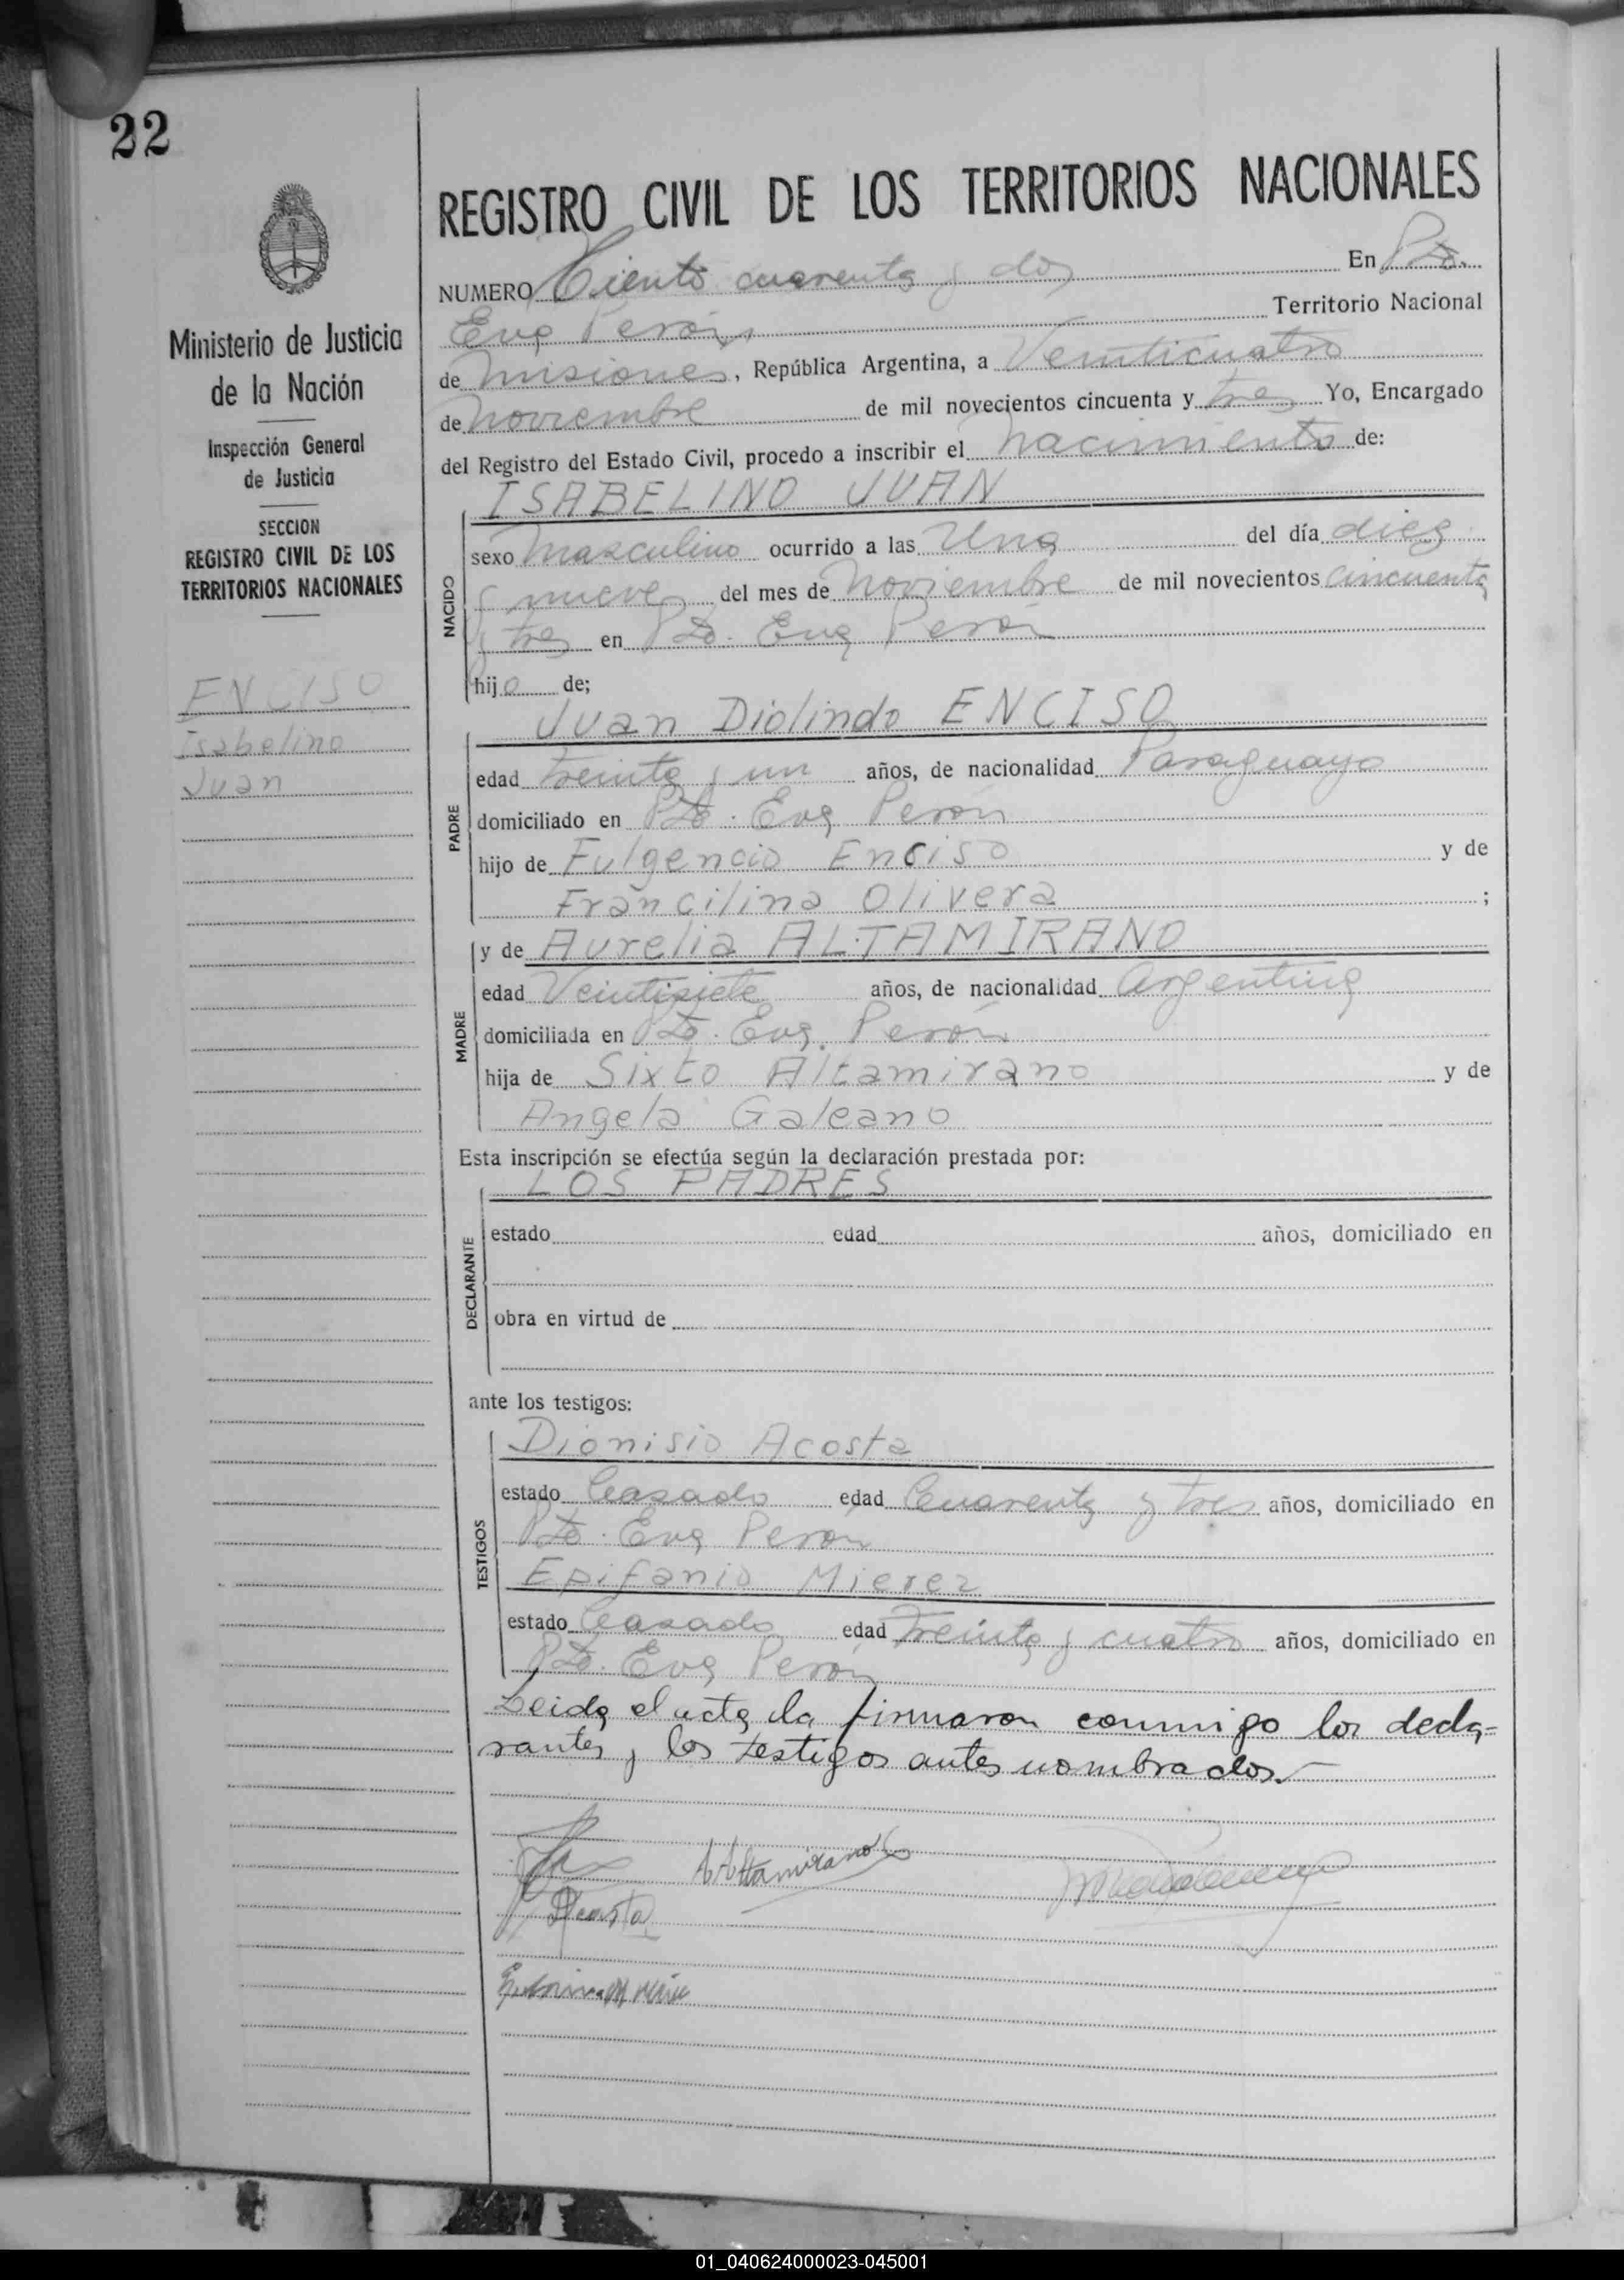 22
Ministerio de Justicia
de la Nación
Inspección General
de Justicia
SECCION
REGISTRO CIVIL DE LOS
TERRITORIOS NACIONALES
ENCISO
Isabelino
Juan
REGISTRO CIVIL DE LOS TERRITORIOS NACIONALES
NUMERO Ciento cuarenta y dos En Pto.
Eva Perón, Territorio Nacional
de Misiones, República Argentina, a Veinticuatro
de noviembre de mil novecientos cincuenta y tres Yo, Encargado
del Registro del Estado Civil, procedo a inscribir el nacimiento de:
ISABELINO JUAN
NACIDO
sexo masculino ocurrido a las Una del día diez
y nueve del mes de Noviembre de mil novecientos cincuenta
y tres en Pto. Eva Perón
hijo de;
Juan Diolindo ENCISO
PADRE
edad treinta y un años, de nacionalidad Paraguayo
domiciliado en Pto. Eva Perón
hijo de Fulgencio Enciso y de
Francilina Olivera ;
y de Aurelia ALTAMIRANO
MADRE
edad Veintisiete años, de nacionalidad argentina
domiciliada en Pto. Eva Perón
hija de Sixto Altamirano y de
Angela Galeano
Esta inscripción se efectúa según la declaración prestada por:
LOS PADRES
DECLARANTE
estado edad años, domiciliado en
obra en virtud de
ante los testigos:
TESTIGOS
Dionisio Acosta
estado Casado edad Cuarenta y tres años, domiciliado en
Pto. Eva Perón
Epifanio Mierez
estado Casado edad treinta y cuatro años, domiciliado en
Pto. Eva Perón
Leida el acta la firmaron conmigo los decla-
rantes y los testigos antes nombrados.
A Altamirano
D Acosta
01_040624000023-045001